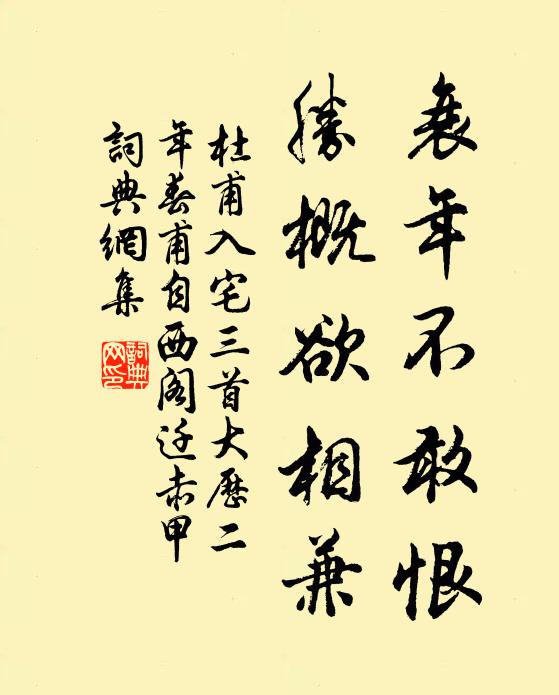 衰年不敢恨
勝概欲相兼
杜甫入宅三首大歷二
年春甫自西閣迁赤甲
詞典網集
詞典网印